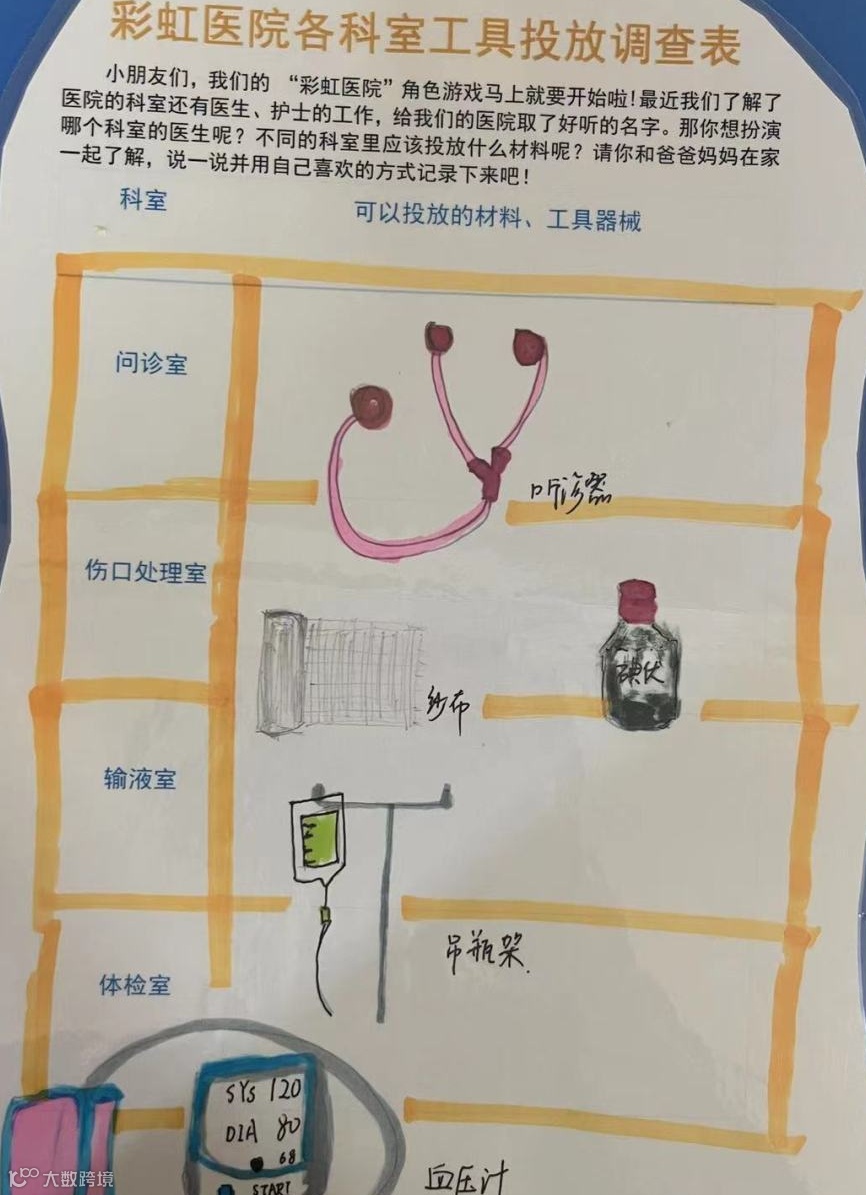 彩虹医院各科室工具投放调查表
小朋友们，我们的 “彩虹医院”角色游戏马上就要开始啦！最近我们了解了
医院的科室还有医生、护士的工作，给我们的医院取了好听的名字。那你想扮演
哪个科室的医生呢？不同的科室里应该投放什么材料呢？请你和爸爸妈妈在家
一起了解，说一说并用自己喜欢的方式记录下来吧！
科室
可以投放的材料、工具器械
问诊室
听诊器
伤口处理室
碘伏
纱布
输液室
吊瓶架.
体检室
SYS 120
DIA 80
68
START
血压计
大数跨境